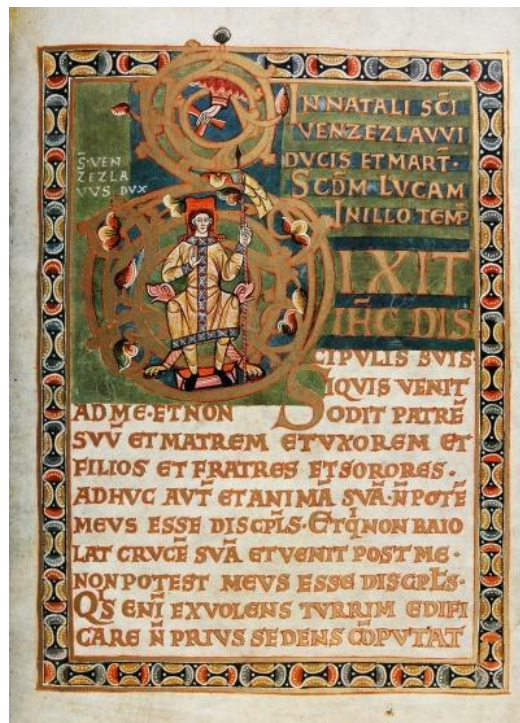 S̄·VEN
ZEZLA
VVS DVX
IN NATALI SC̄I
VENZEZLAVVI
DVCIS ET MART̄·
SCD̄M LVCAM
IN ILLO TEMP̄
DIXIT
IH̄C DIS
CIPVLIS SVIS·
SIQVIS VENIT
AD ME·ET NON ODIT PATRĒ
SVV̄ ET MATREM ET VXOREM ET
FILIOS ET FRATRES ET SORORES·
ADHVC AVT̄ ET ANIMĀ SVĀ·N̄ POTĒ
MEVS ESSE DISCPL̄S·ET Q̄I NON BAIO
LAT CRVCĒ SVĀ ET VENIT POST ME·
NON POTEST MEVS ESSE DISCPL̄S·
Q̄S ENĪ EX VOLENS TVRRIM EDIFI
CARE N̄ PRIVS SEDENS CŌPVTAT